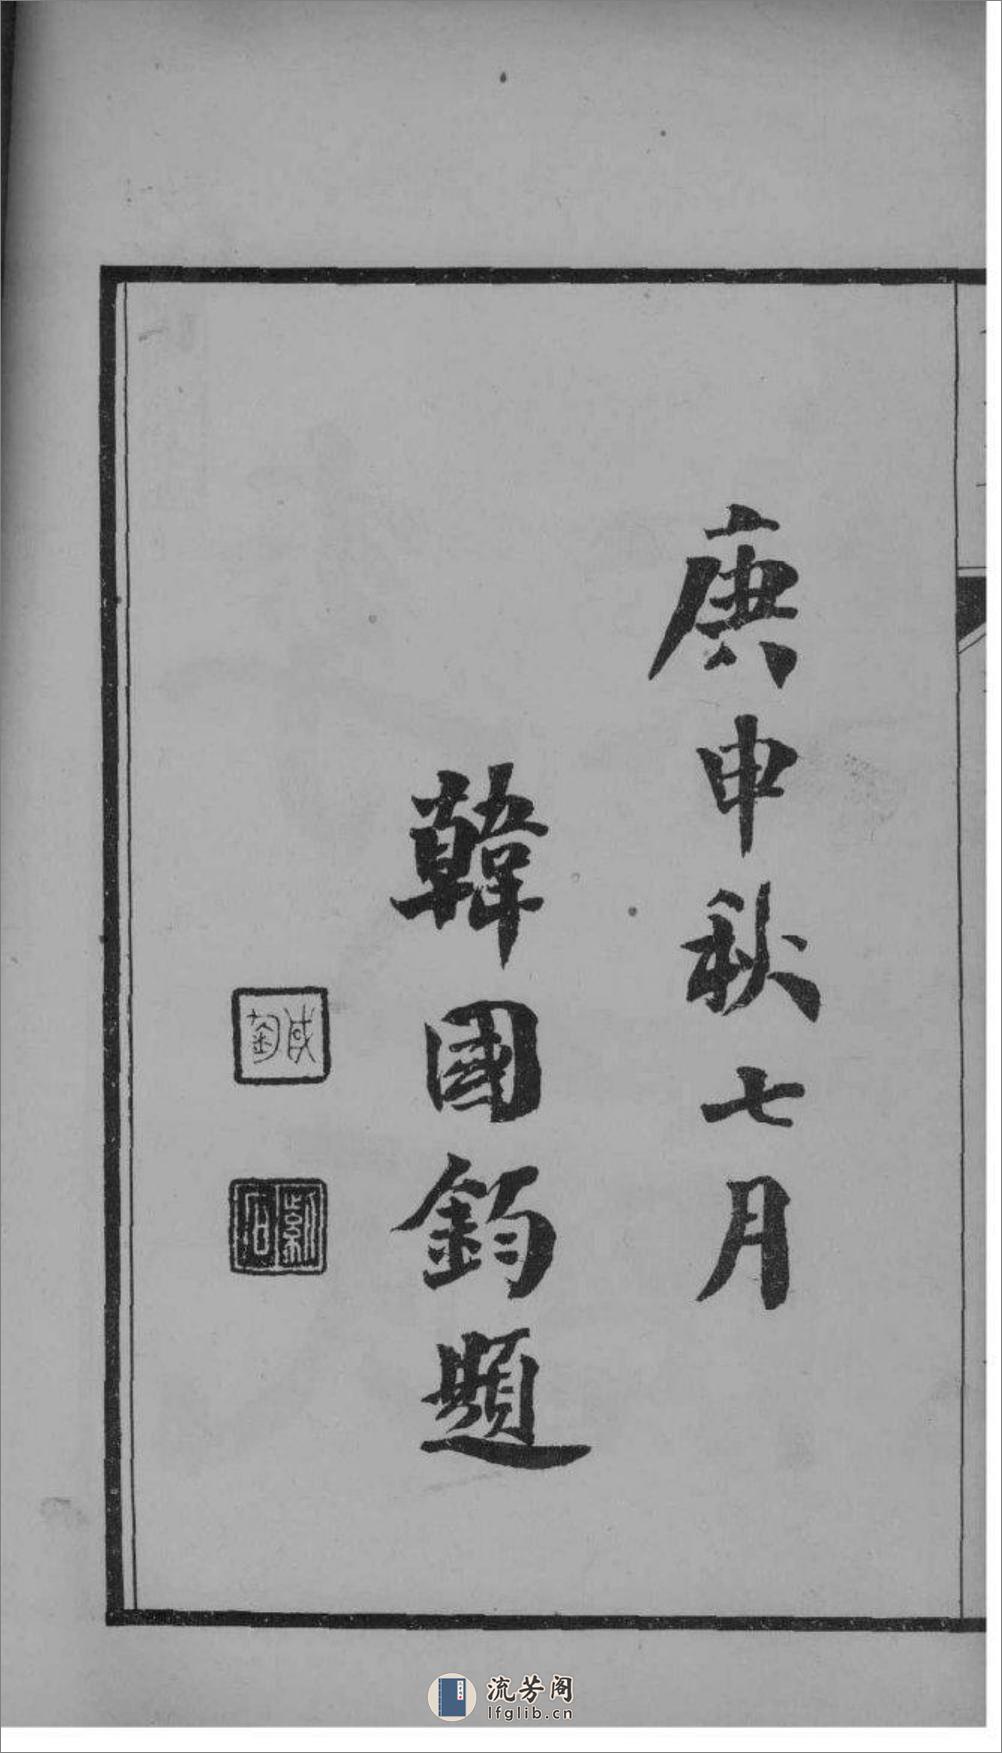 庚申秋七月
韓國鈞題
紫石
流芳阁
lfglib.cn